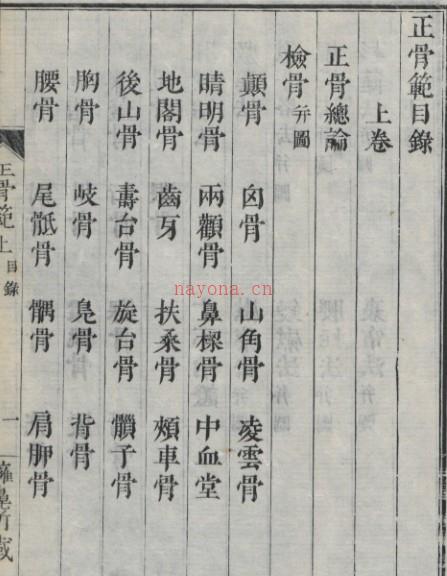 正骨範目錄
上卷
正骨總論
檢骨并圖
顛骨 囟骨 山角骨 凌雲骨
睛明骨 兩顴骨 鼻梁骨 中血堂
地閣骨 齒牙 扶桑骨 頰車骨
後山骨 壽台骨 旋台骨 子骨
胸骨 岐骨 凫骨 背骨
腰骨 尾骶骨 髃骨 肩胛骨
正骨範上 目錄 一
nayona.cn